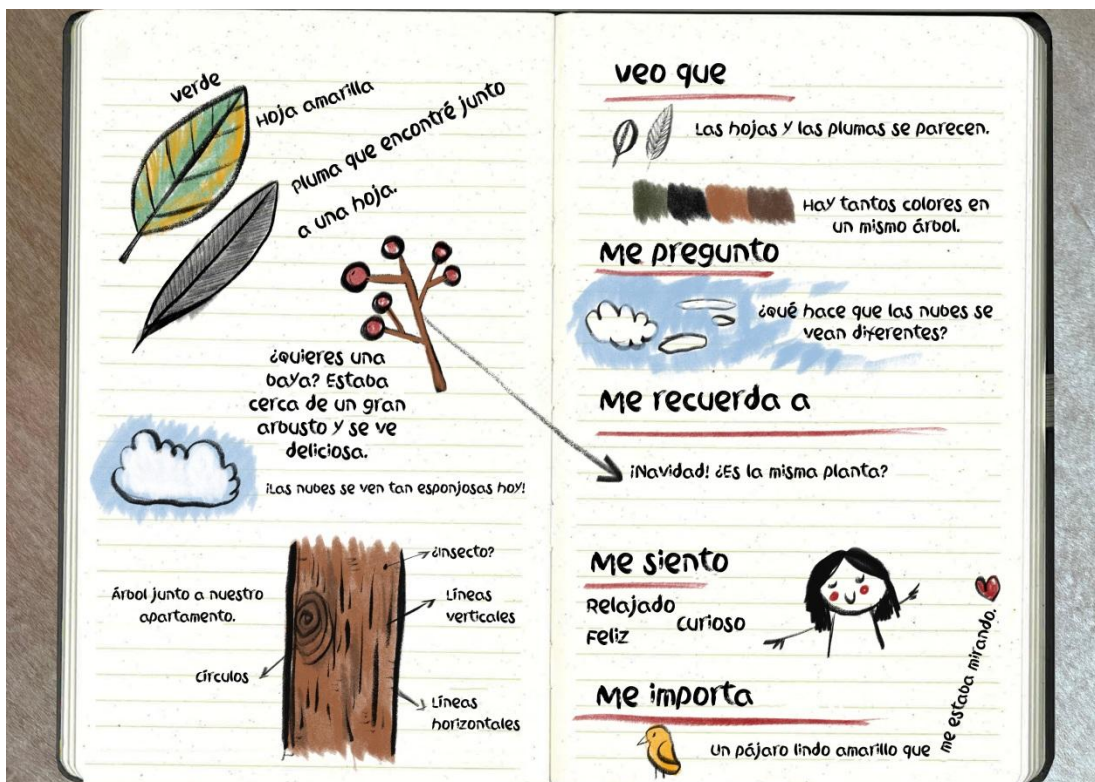 verde
Hoja amarilla
Pluma que encontré junto
a una hoja.
¿Quieres una
baya? Estaba
cerca de un gran
arbusto y se ve
deliciosa.
¡Las nubes se ven tan esponjosas hoy!
Árbol junto a nuestro
apartamento.
¿Insecto?
Líneas
verticales
círculos
Líneas
horizontales
Veo que
Las hojas y las plumas se parecen.
Hay tantos colores en
un mismo árbol.
Me pregunto
¿Qué hace que las nubes se
vean diferentes?
Me recuerda a
¡Navidad! ¿Es la misma planta?
Me siento
Relajado
curioso
Feliz
Me importa
Un pájaro lindo amarillo que
me estaba mirando.